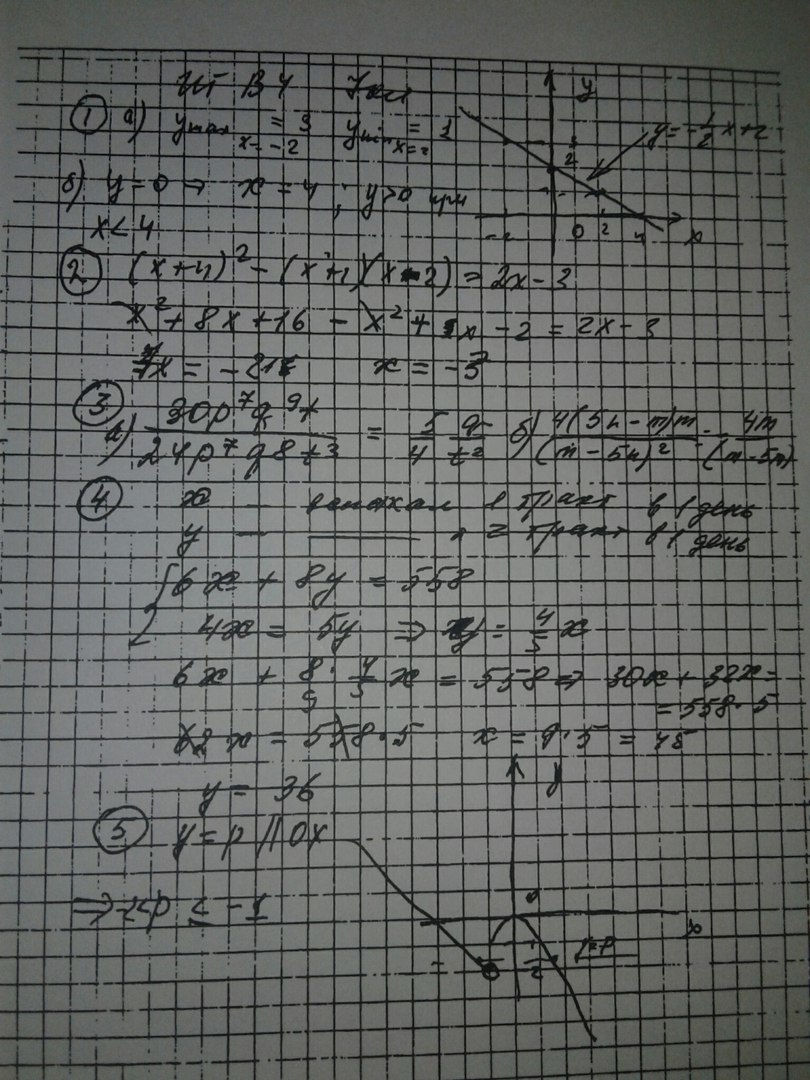 ИТ В4 7кл
① а) y max x=-2 = 3 y min x=2 = 1
y = -1/2 x + 2
б) y = 0 ⇒ x = 4 ; y > 0 при
x < 4
② (x+4)² - (x+1)(x-2) = 2x - 3
x² + 8x + 16 - x² + x - 2 = 2x - 3
7x = -21 x = -3
③ а) 30p⁷q⁹t / 24p⁷q8t³ = 5/4 q/t² б) 4(5n - m)m / (m - 5n)² = 4m / (m - 5n)
④ x - вспахал 1 тракт в 1 день
y - ——— 2 тракт в 1 день
6x + 8y = 558
4x = 5y ⇒ y = 4/5 x
6x + 8 · 4/5 x = 558 ⇒ 30x + 32x =
= 558 · 5
62x = 558 · 5 x = 9 · 5 = 45
y = 36
⑤ y = p || OX
⇒ -2 < p ≤ -1
y
x
0
y=p